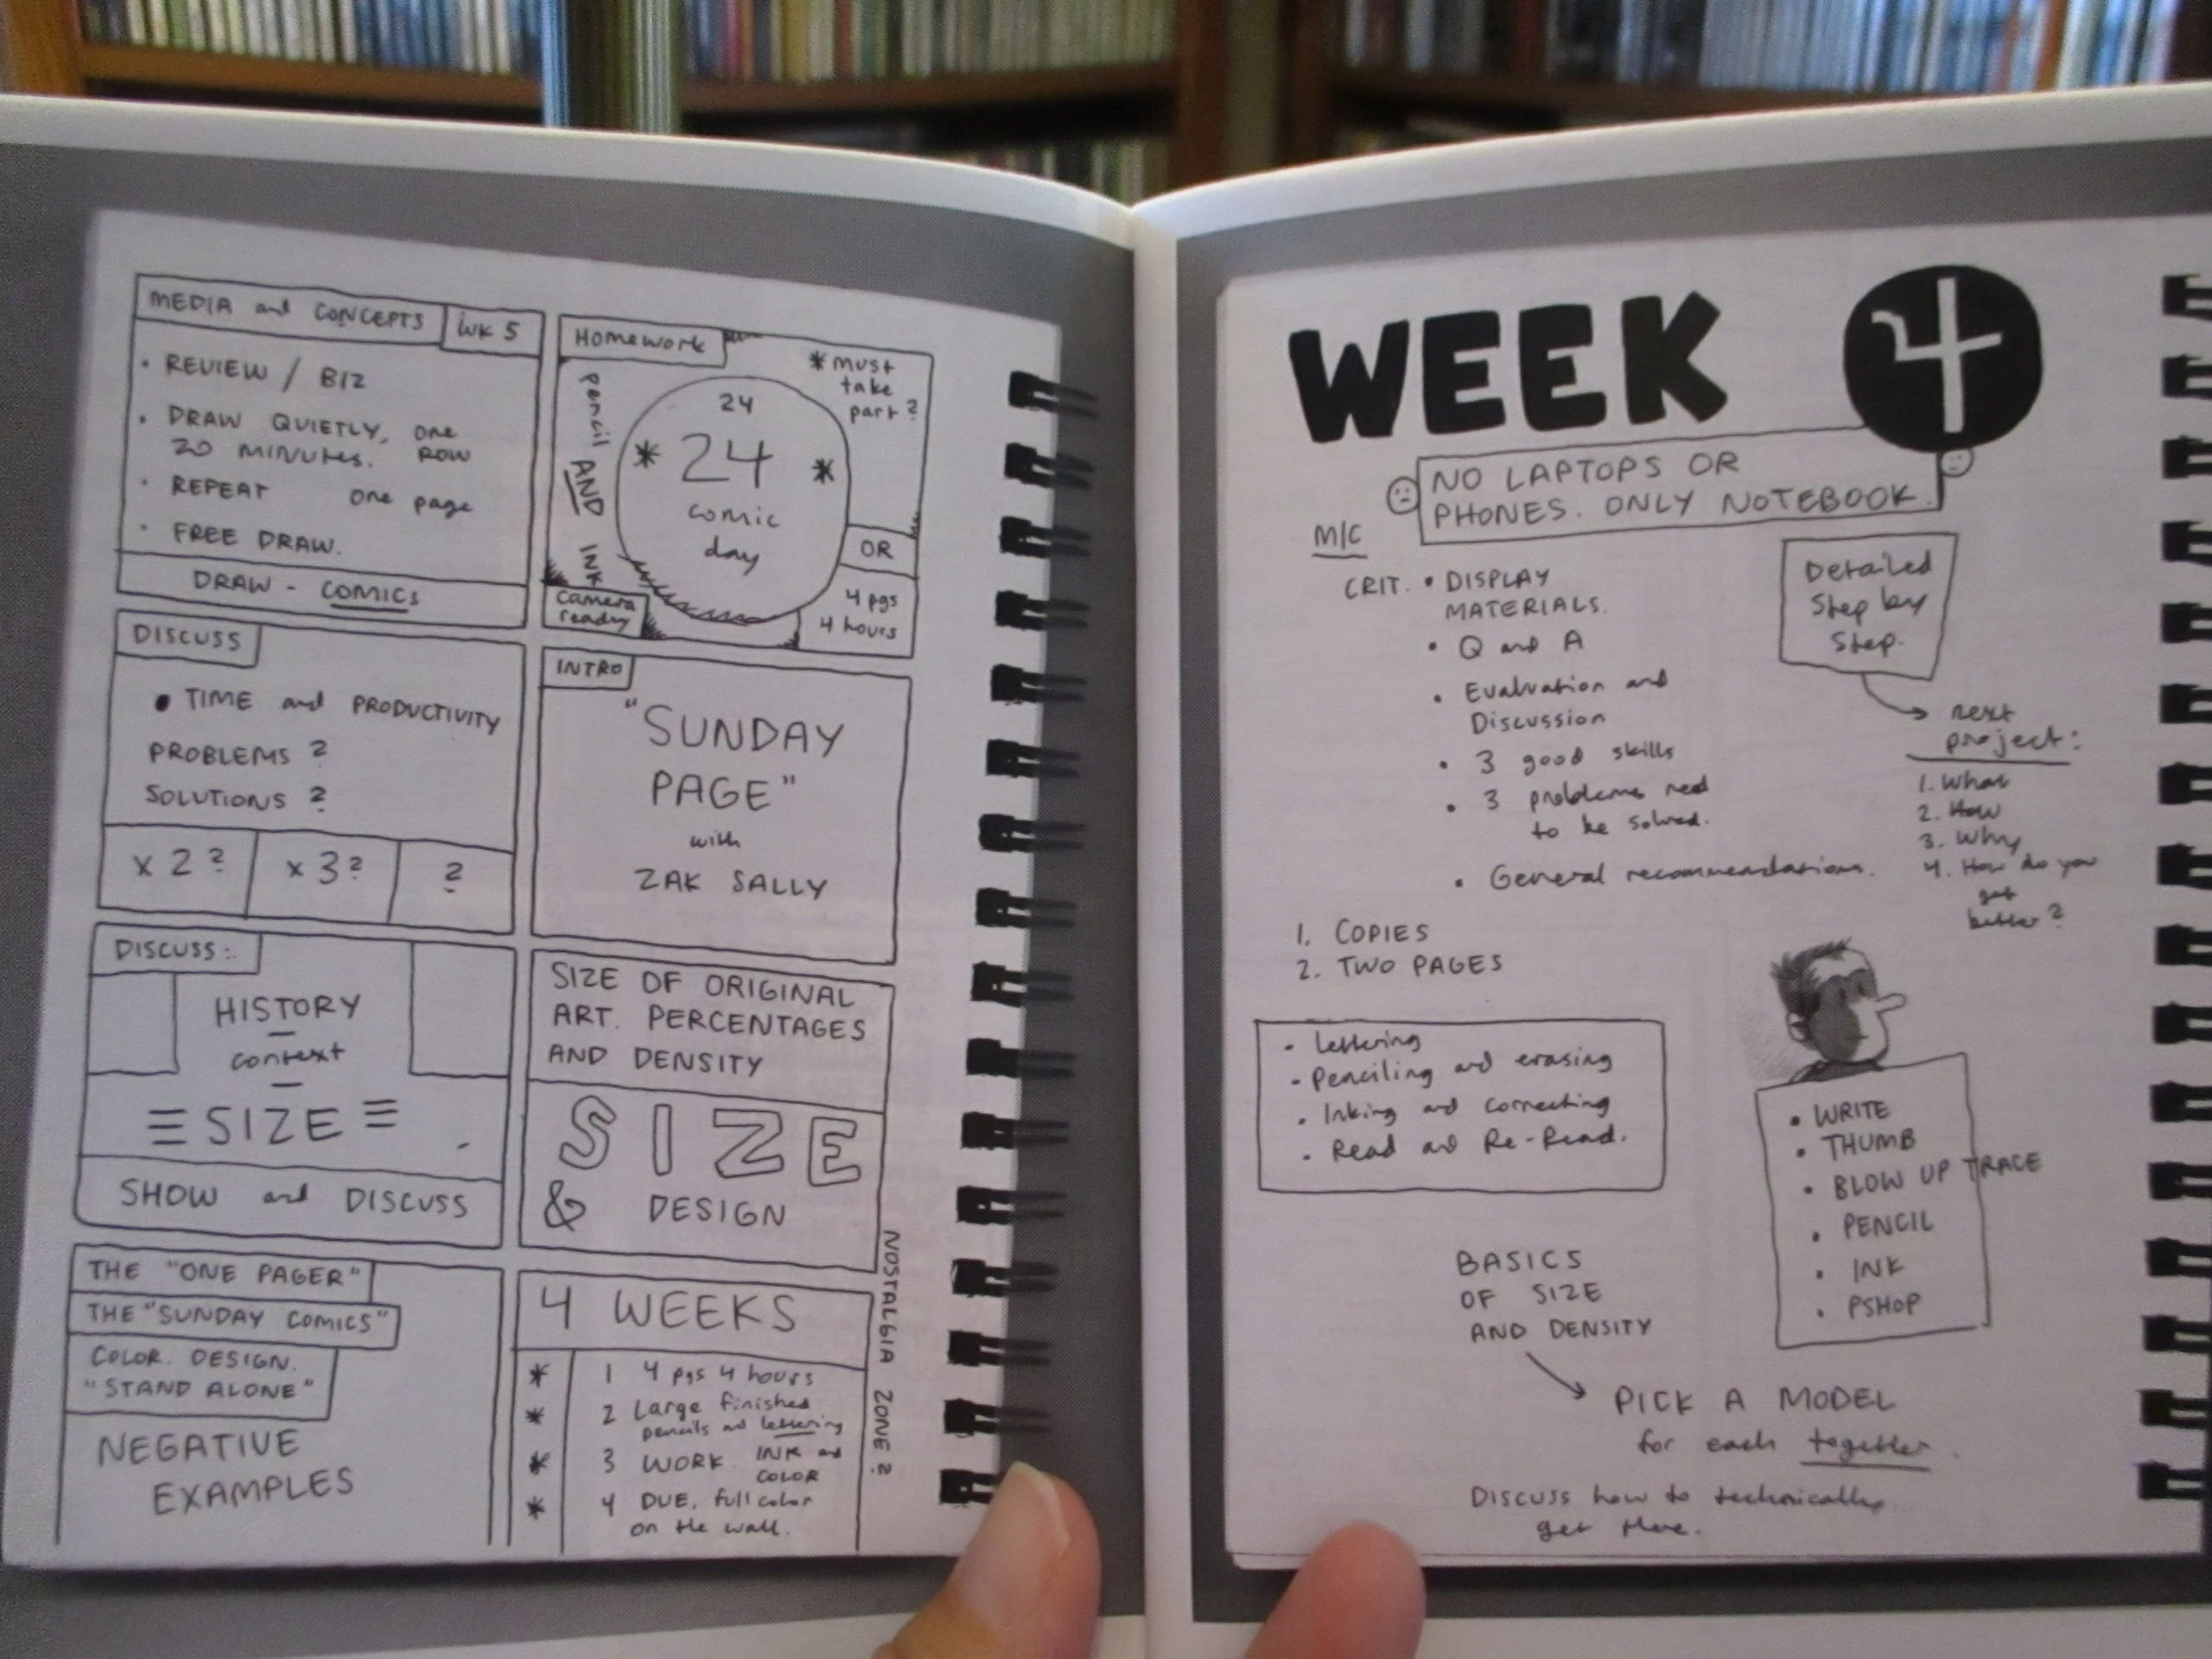 MEDIA and CONCEPTS WK 5
• REVIEW / BIZ
• DRAW QUIETLY, one
20 MINUTES. ROW
• REPEAT one page
• FREE DRAW.
DRAW - COMICS
Homework
* must
take
part?
pencil AND INK
24
* 24 *
comic
day
OR
4 pgs
4 hours
camera
ready
DISCUSS
• TIME and PRODUCTIVITY
PROBLEMS?
SOLUTIONS?
x 2? x 3? ?
INTRO
"SUNDAY
PAGE"
with
ZAK SALLY
DISCUSS:
HISTORY
context
SIZE
SHOW and DISCUSS
SIZE OF ORIGINAL
ART. PERCENTAGES
AND DENSITY
SIZE
& DESIGN
THE "ONE PAGER"
THE "SUNDAY COMICS"
COLOR. DESIGN.
"STAND ALONE"
NEGATIVE
EXAMPLES
4 WEEKS
* 1 4 pgs 4 hours
* 2 Large finished
pencils and lettering
* 3 WORK INK and
COLOR
* 4 DUE, full color
on the wall.
NOSTALGIA ZONE?
WEEK 4
NO LAPTOPS OR
PHONES. ONLY NOTEBOOK.
M/C
CRIT. • DISPLAY
MATERIALS.
• Q and A
• Evaluation and
Discussion
• 3 good skills
• 3 problems need
to be solved.
• General recommendations.
Detailed
Step by
Step.
next
project:
1. What
2. How
3. Why
4. How do you
get
better?
1. COPIES
2. TWO PAGES
• Lettering
• Penciling and erasing
• Inking and correcting
• Read and Re-Read.
• WRITE
• THUMB
• BLOW UP TRACE
• PENCIL
• INK
• PSHOP
BASICS
OF SIZE
AND DENSITY
PICK A MODEL
for each together.
Discuss how to technically
get there.